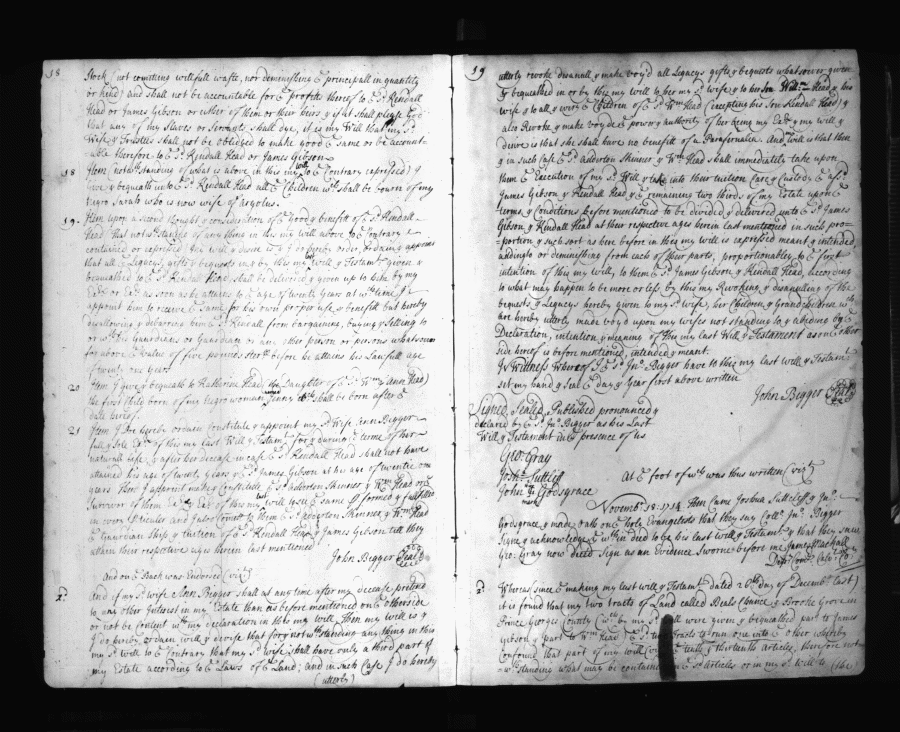 18
Stock (not comitting willfull waste, nor deminishing ye principall in quantity
or kind) and shall not be accountable for ye profitts thereof to ye sd Kendall
Head or James Gibson or either of them or their heirs & if it shall please God
that any of my Slaves or Servants shall dye, it is my Will that my sd
Wife & Trustees shall not be obliged to make good ye same or be account-
able therefore to ye sd Kendall Head or James Gibson
18 Item, notwthstanding of what is above in this my will to ye Contrary expressed) I
give & bequeath unto ye sd Kendall Head all ye Children wch shall be born of my
Negro Sarah who is now wife of
19 Item upon a second thought & consideration of ye Good & benefitt of ye sd Kendall
Head that notwthstanding of any thing in this my will above to ye Contrary
contained or expressed my will & desire is & I do hereby order Ordain & appoint
that all ye Legacys, gifts & bequests made by this my last will & Testamt given &
bequeathed to ye sd Kendall Head shall be delivered & given up to him by my
Exr or Exs as soon as he attains to ye age of twenty years at wch time I
appoint him to receive ye same for his own proper use & benefitt but hereby
disallowing & debarring him ye sd Kendall from bargaining, buying & selling to
or wth his Guardians or Guardian or any other person or persons whatsoever
for above ye value of five pounds sterl before he attains his Lawfull age
of twenty one years
20 Item I give & bequeath to Katherine Head, the Daughter of ye sd Wm & Ann Head,
the first Child born of my Negro woman Jenny wch shall be born after ye
date hereof
21 Item I do hereby ordain Constitute & appoint my sd Wife Ann Bigger
full & sole Exx of this my last Will & Testamt for & during ye terme of her
naturall life, & after her decease in case ye sd Kendall Head shall not have
attained his age of twenty years & ye sd James Gibson at he age of twentie one
years then I appoint make & constitute ye sd Adderton Skinner & Wm Head or ye
Survivor of them Exrs or Exr of this my last will to see ye same performed & fullfilled
in every particuler and I also Comitt to them ye sd Adderton Skinner, & Wm Head
ye Guardian Ship & tuition of ye sd Kendall Head & James Gibson till they
attain their respective ages herein last mentioned
John Bigger Seal
And on ye Back was Endorsed (vizt)
And if my sd wife Ann Bigger shall at any time after my decease pretend
to any other Interest in my Estate than as before mentioned on ye other side
or not be Content wth my declaration in this my will then my will is &
I do hereby ordain will & devise that for & notwthstanding any thing in this
my sd Will to ye Contrary that my sd wife shall have only a third part of
my Estate according to ye Laws of ye Land; and in such Case I do hereby
(utterly)
19
utterly revoke disannull & make voyd all Legacys gifts & bequests whatsoever given
& bequeathed in or by this my will to her my sd wife & to her Son Willm Head & his
wife & to all & every ye Children of ye sd Wm Head (excepting his Son Kendall Head) &
also Revoke & make voyd ye power & authority of her being my Exx & my will &
desire is that she shall have no benefitt of a Parafernalia. And will is that then
& in such Case ye sd Adderton Skinner & Wm Head shall immediately take upon
them ye Execution of my sd Will & take into their tuition Care & Custody ye afsd
James Gibson & Kendall Head & ye remaining two thirds of my Estate upon ye
terms & Conditions before mentioned to be divided & delivered unto ye sd James
Gibson & Kendall Head at their respective ages herein last mentioned in such pro-
=portion & such sort as here before in this my will is expressed meant & intended,
adding to or deminishing from each of their parts, proportionably to ye first
intention of this my will, to them ye sd James Gibson & Kendall Head, according
to what may happen to be more or less by this my Revoking & disannulling of the
bequests & Legacys hereby given to my sd wife, her Children & Grandchildren wch
are hereby utterly made voyd upon my wifes not standing to & abideing by ye
Declaration, intention & meaning of this my last Will & Testament as on ye other
side hereof is before mentioned, intended & meant.
In Wittness Whereof I ye sd Jno Bigger have to this my last will & Testamt
set my hand & seal ye day & year first above written
John Bigger Seal
Signed, Sealed, Published pronounced &
declared by ye sd Jno Bigger as his Last
Will & Testament in ye presence of us
Geo: Gray
Josha Suttcliff
John his mark Godsgrace
At ye foot of wch was thus written (vizt)
Novembr 18: 1714 Then Came Joshua Suttcliff & Jno
Godsgrace & made oath on ye holy Evangelists that they saw Collo Jno Bigger
Signe & acknowledge ye within deed to be his last will & Testamt & that they saw
Geo: Gray now deced Sign as an Evidence Sworne before me James Mackall
Depty Comy Calvt Co
Whereas since ye making my last will & Testamt dated 20th day of Decembr last)
it is found that my two tracts of Land called Beals Chance & Brooke Grove in
Prince Georges County wch by my sd will were given & bequeathed part to James
Gibson & part to Wm Head ye sd tracts to run one into ye other whereby
Confound that part of my will & thirteenth Articles, therefore not-
=wthstanding what may be contained in ye sd Articles or in my sd will to (the